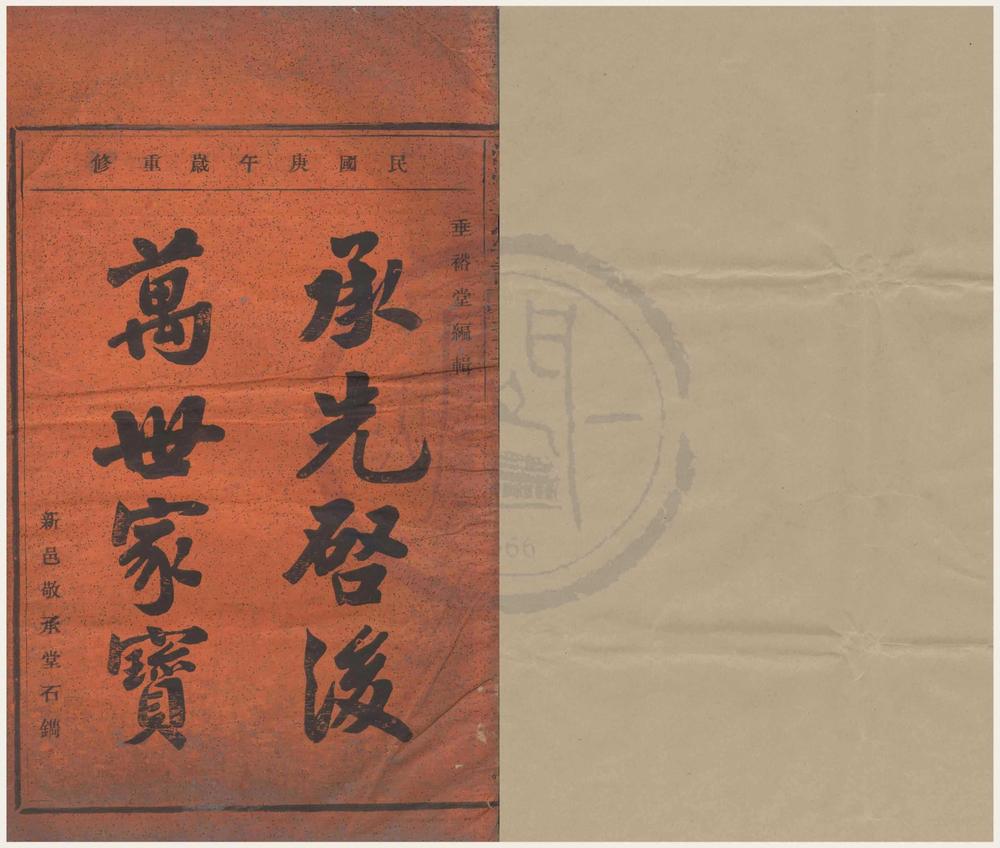 民國庚午歲重修
垂裕堂編輯
承先啓後
萬世家寶
新邑敬承堂石鐫